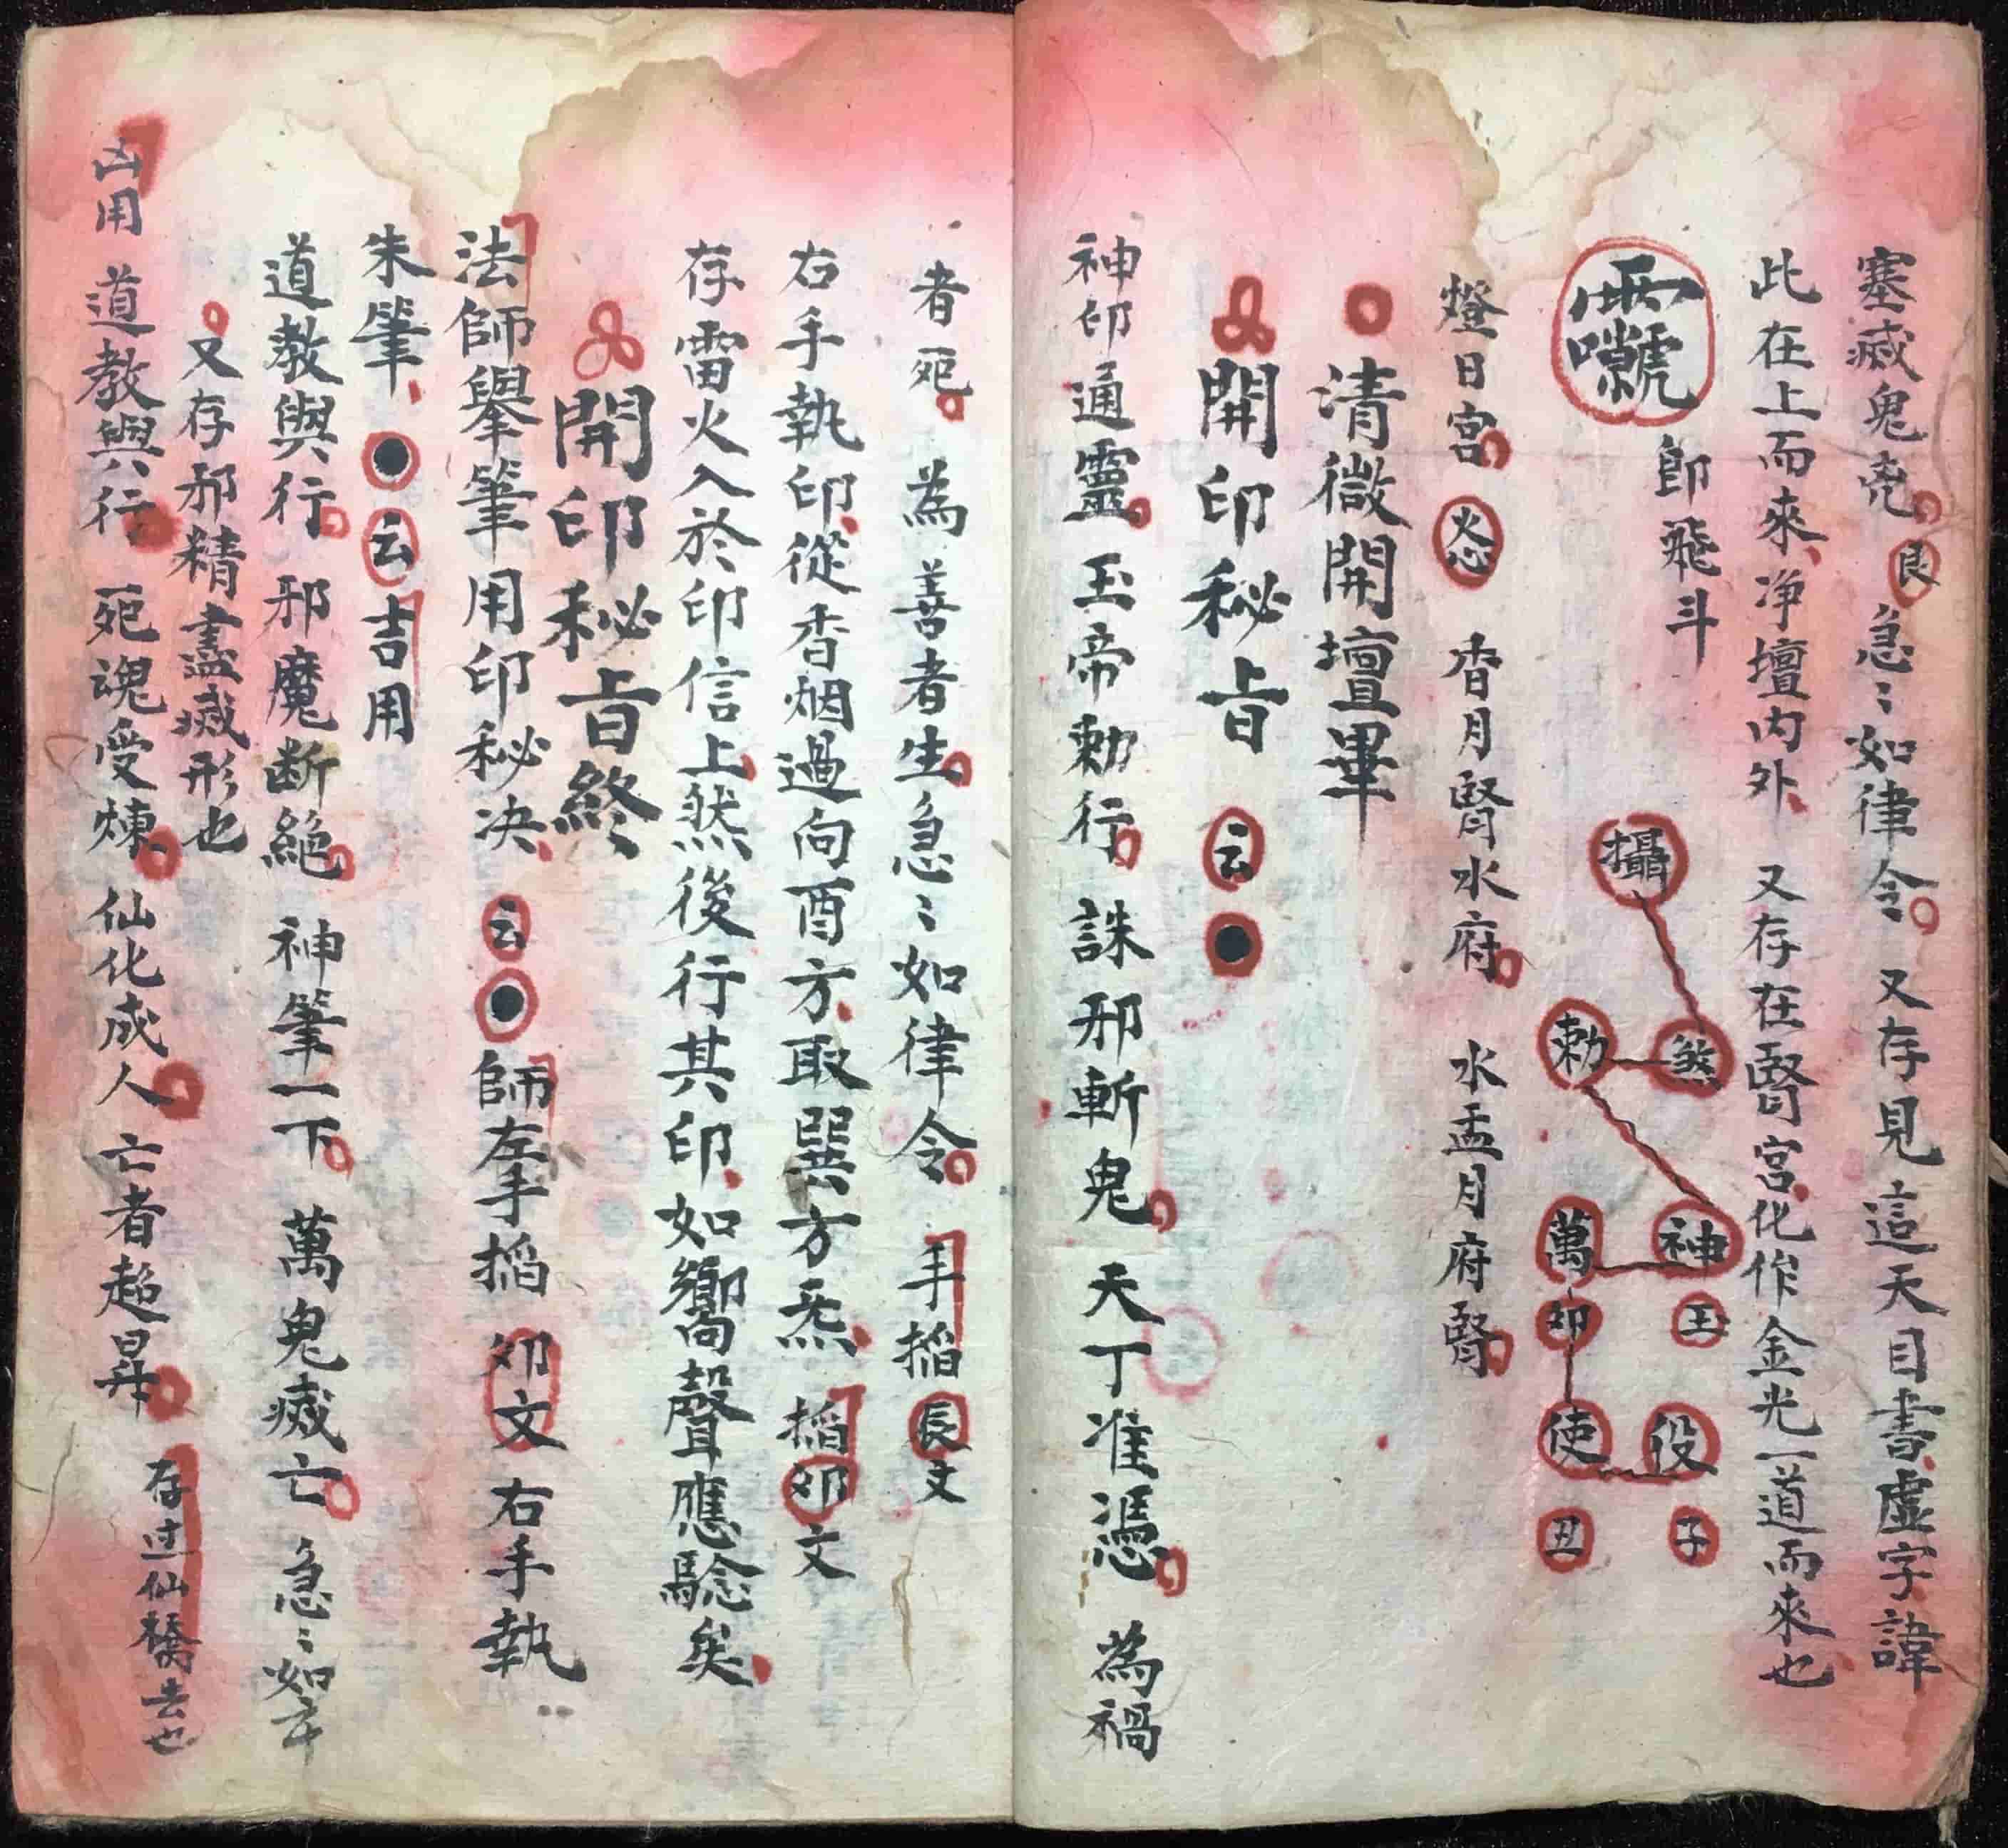 塞滅鬼兠 艮 急〻如律令 又存見這天目書虛字諱
此在上而來净壇内外 又存在腎宮化作金光一道而來也
即飛斗
攝
煞 勅
神 萬
玉 卯
役 使
子 丑
燈日宮 火心 香月腎水府 水盂月府腎
清微開壇畢
開印秘旨 云
神印通靈 玉帝勅行 誅邪斬鬼 天丁准憑 為禍
者死 為善者生 急〻如律令 手搯長文
右手執印從香烟過向酉方取巽方炁 搯卯文
存雷火入於印信上然後行其印如嚮聲應驗矣
開印秘旨終
法師舉筆用印秘决 云 師左手搯卯文右手執
朱筆 云 吉用
道教興行 邪魔断絕 神筆一下 萬鬼滅亡 急〻如
又存邪精盡滅形也
凶用 道教興行 死魂受煉 仙化成人 亡者超昇 存过仙橋去也